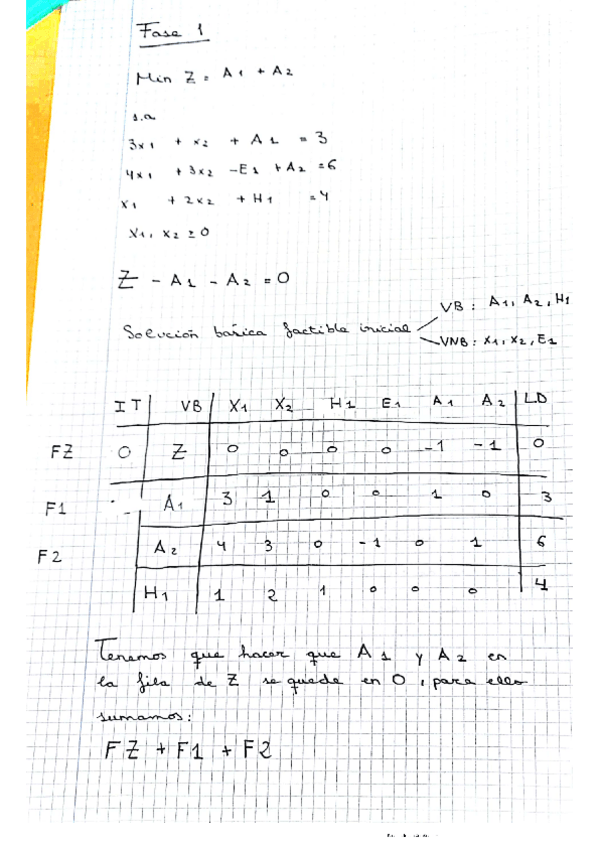 Fase 1
Min Z = A1 + A2
s.a
3x1 + x2 + A1 = 3
4x1 + 3x2 - E1 + A2 = 6
x1 + 2x2 + H1 = 4
x1, x2 ≥ 0
Z - A1 - A2 = 0
Solución básica factible inicial
VB: A1, A2, H1
VNB: x1, x2, E1
IT VB X1 X2 H1 E1 A1 A2 LD
FZ 0 Z 0 0 0 0 -1 -1 0
F1 A1 3 1 0 0 1 0 3
F2 A2 4 3 0 -1 0 1 6
H1 1 2 1 0 0 0 4
Tenemos que hacer que A1 y A2 en
la fila de Z se quede en 0, para ello
sumamos:
FZ + F1 + F2